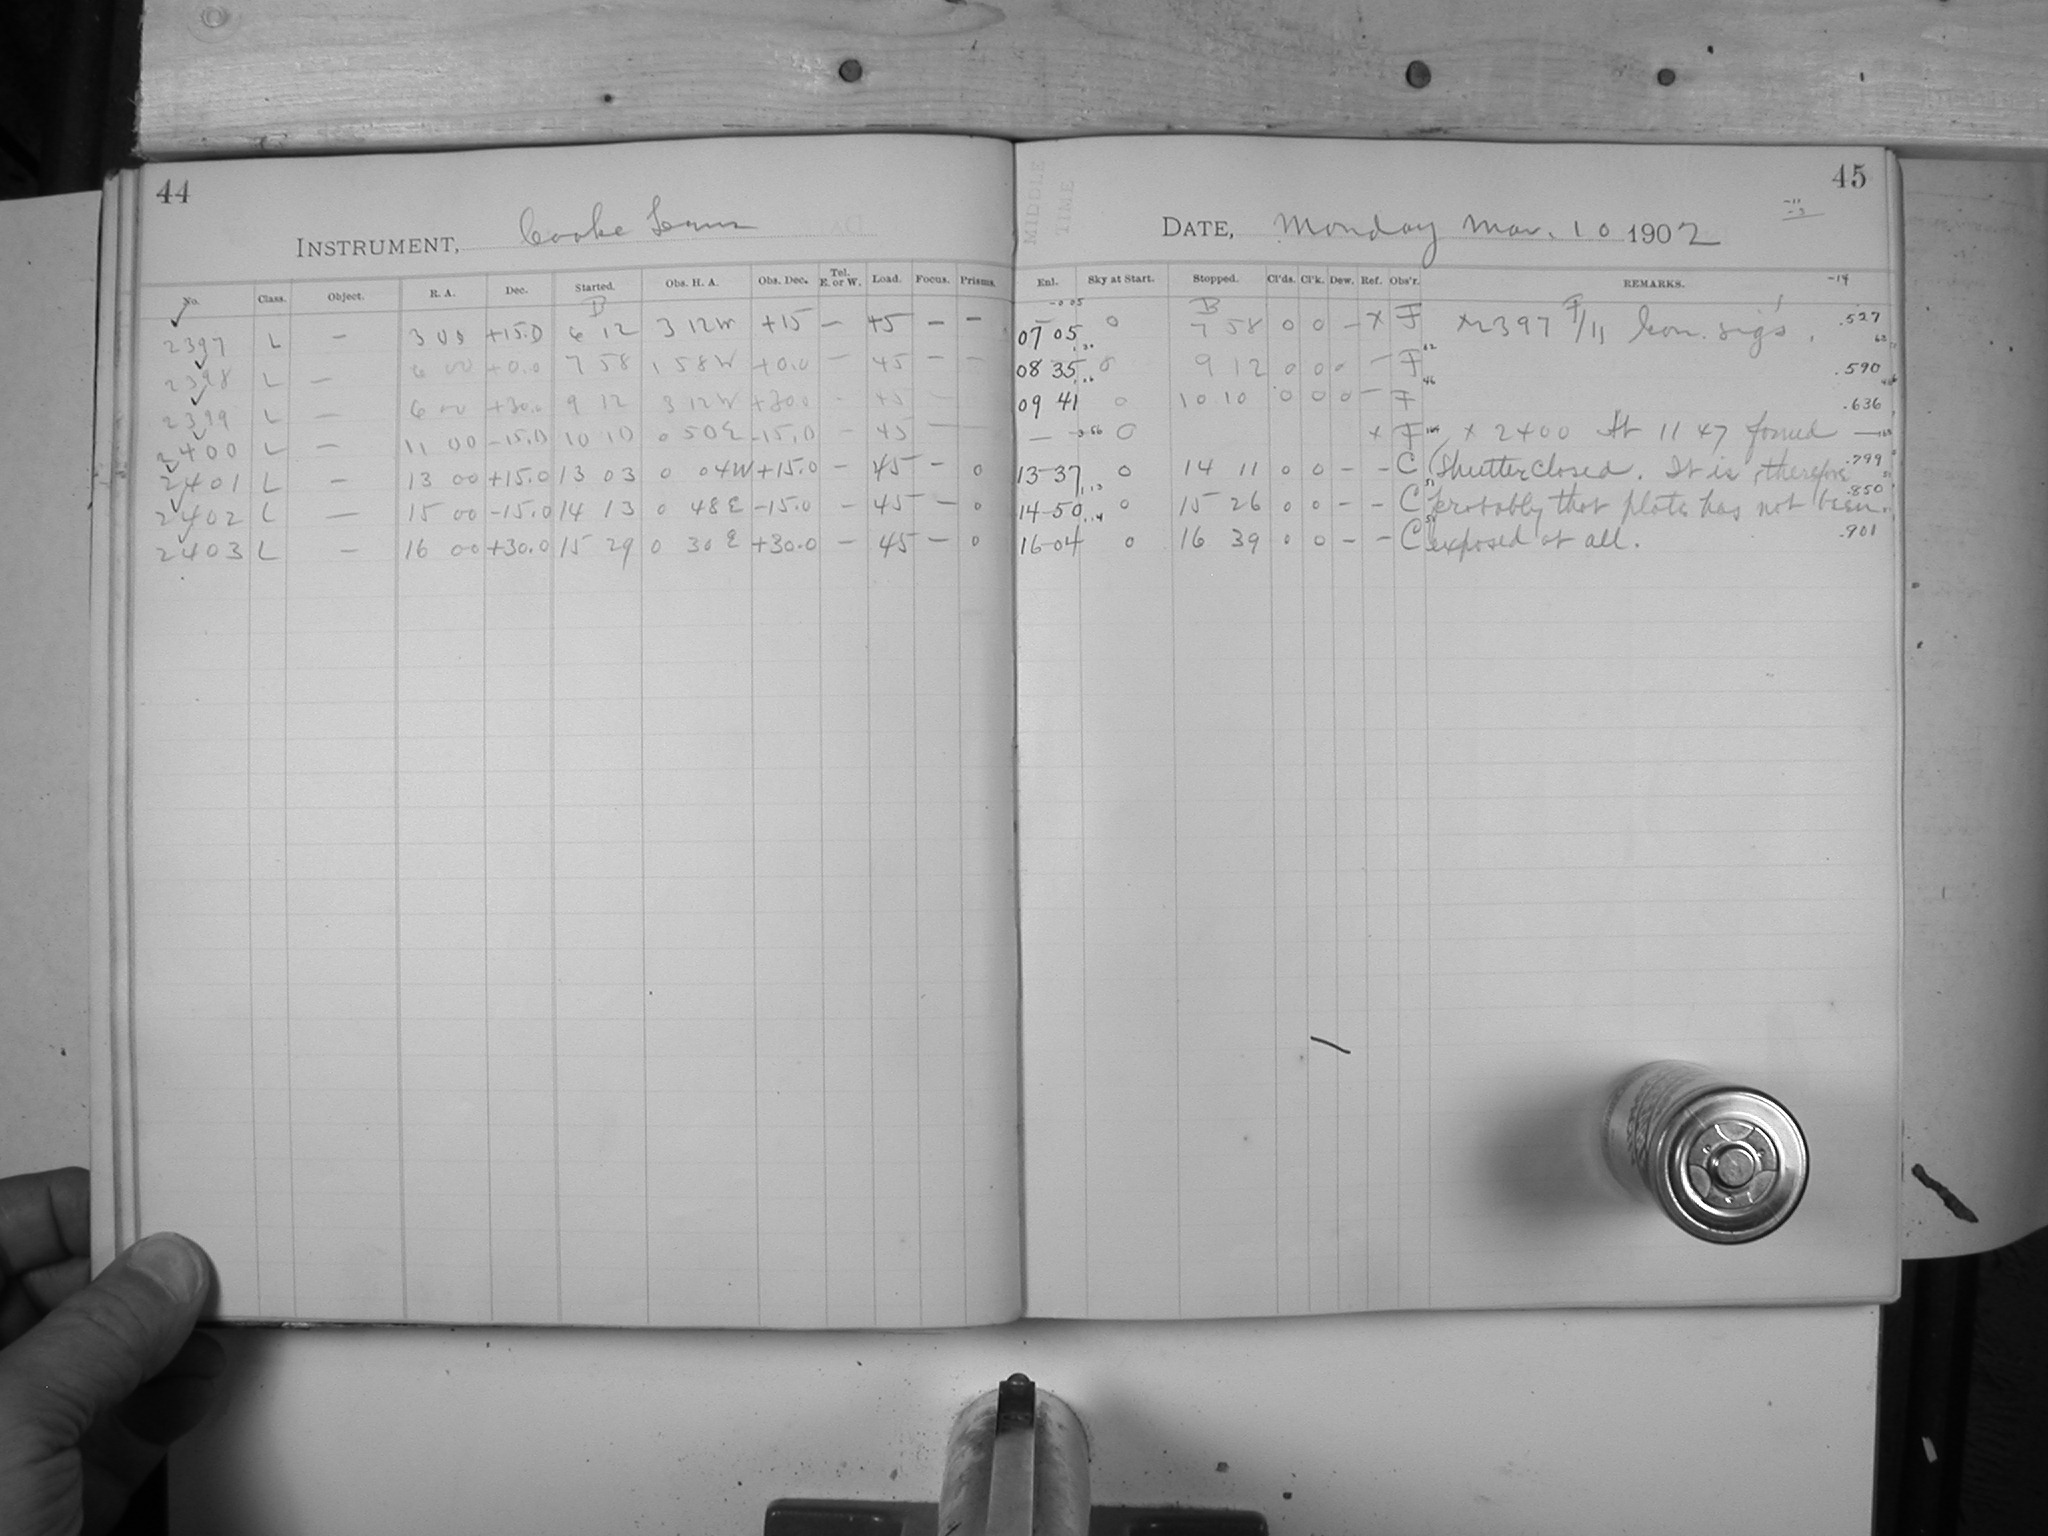 44
INSTRUMENT, Cooke Lens
No. Class. Object. R. A. Dec. Started. Obs. H. A. Obs. Dec. Tel. E. or W. Load. Focus. Prisms.
B
2397 L — 3 00 +15.0 6 12 3 12W +15 — 45 — —
2398 L — 6 00 +0.0 7 58 1 58W +0.0 — 45 — —
2399 L — 6 00 +30.0 9 12 3 12W +30.0 - 45
2400 L — 11 00 -15.0 10 10 0 50E -15.0 — 45 —
2401 L — 13 00 +15.0 13 03 0 04W +15.0 — 45 — 0
2402 L — 15 00 -15.0 14 13 0 48E -15.0 — 45 — 0
2403 L — 16 00 +30.0 15 29 0 30E +30.0 — 45 — 0
45
MIDDLE
TIME
DATE, Monday Mar. 10 1902
Enl. Sky at Start. Stopped. Cl'ds. Cl'k. Dew. Ref. Obs'r. REMARKS. -14
B
07 05 0 7 58 0 0 — x F x2397 F/11 .527
08 35 0 9 12 0 0 0 — F .590
09 41 0 10 10 0 0 0 — F .636
— 0 x F x 2400 At 11 47 found —
13-37 0 14 11 0 0 - - C (Shutter closed. It is therefore .799
14-50 0 15 26 0 0 - - C probably that plate has not been .850
16-04 0 16 39 0 0 - - C exposed at all. .901